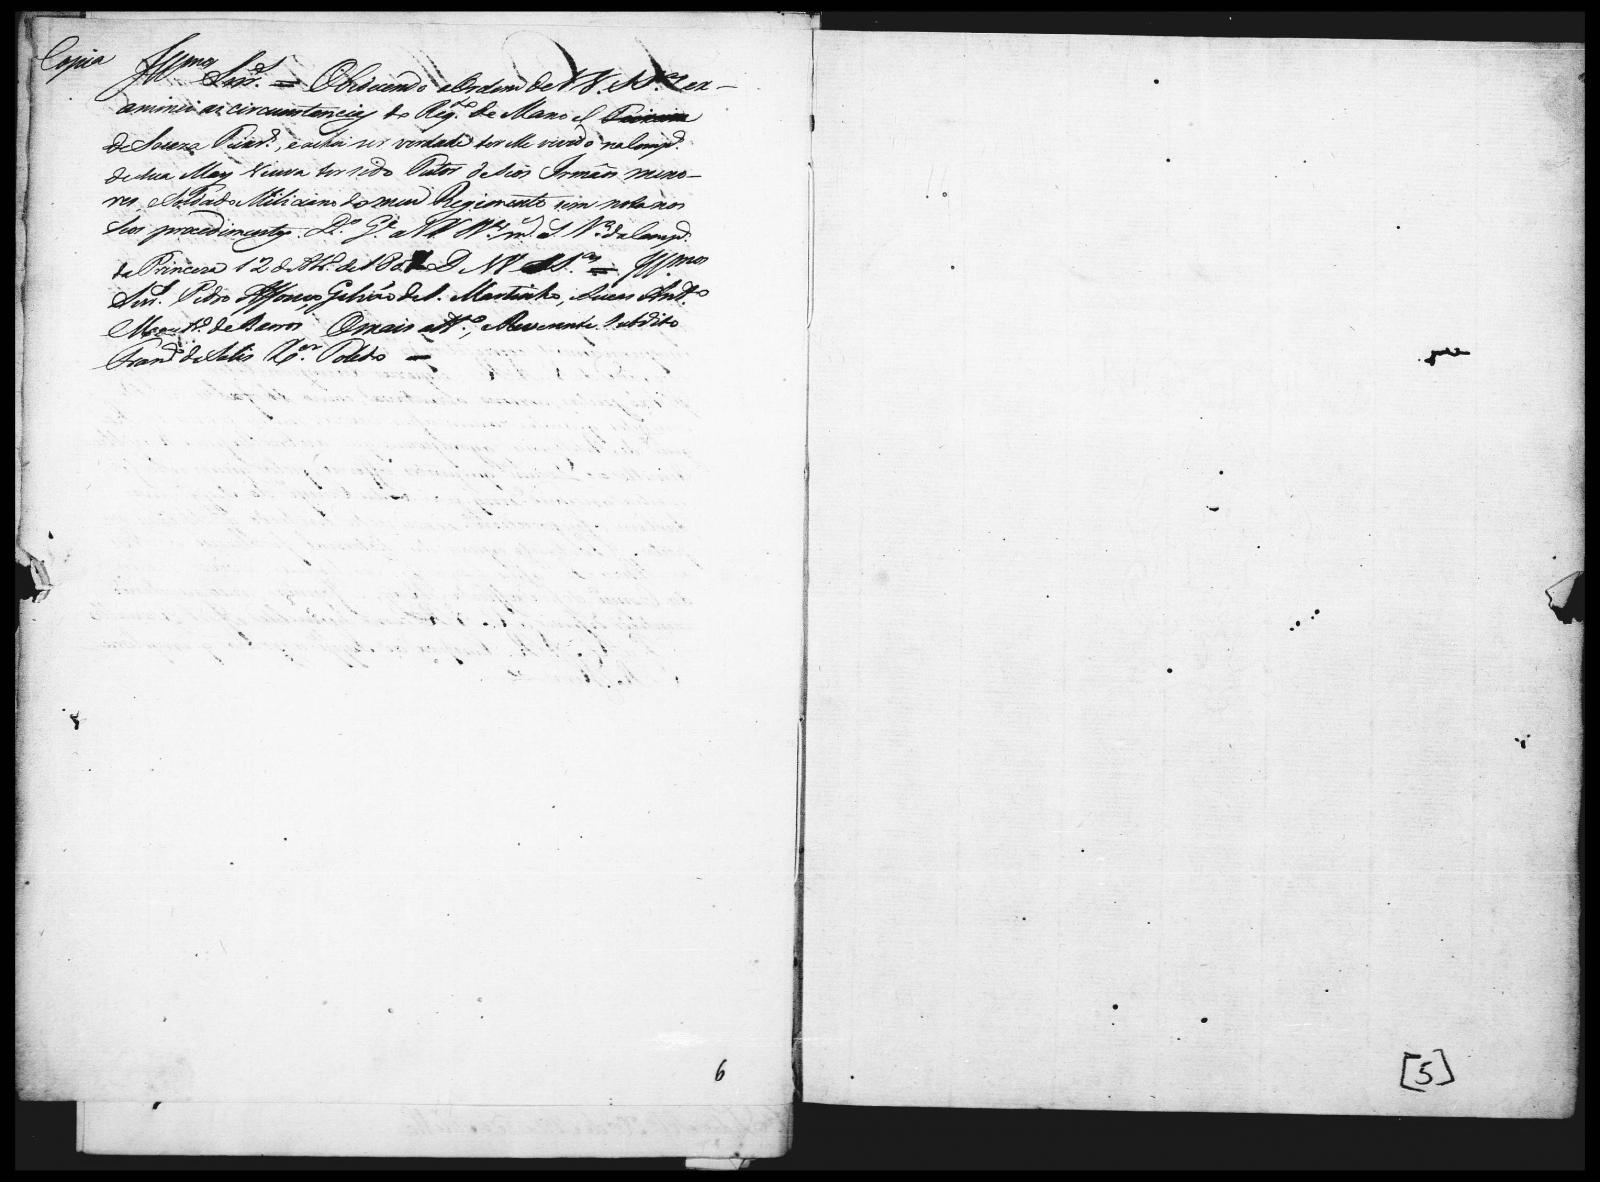 Copia
Illmos
Snrs. = Obidecendo a Ordem de V.V. S.as ex-
aminei as circunstancias do Reqo. de Manoel
de Souza , e achei ser verdade ter elle vivido na Comp.a
de sua May Viuva ter sido Tutor de seos Irmãos meno-
res, e Soldado Miliciano do meu Regimento sem nota nos
seos procedimentos. D.s G.e a VV. S.as m.s a.s V.a da Camp.a
da Princeza 12 de de 180 D VV. S.as = Illmos
Snrs. Pedro Affonso Galvão de S. Martinho, Lucas Ant.o
Montr.o de Barros O mais att.o, e Reverente Subdito
Fran.co de Salis X.er Toledo =
6
[5]